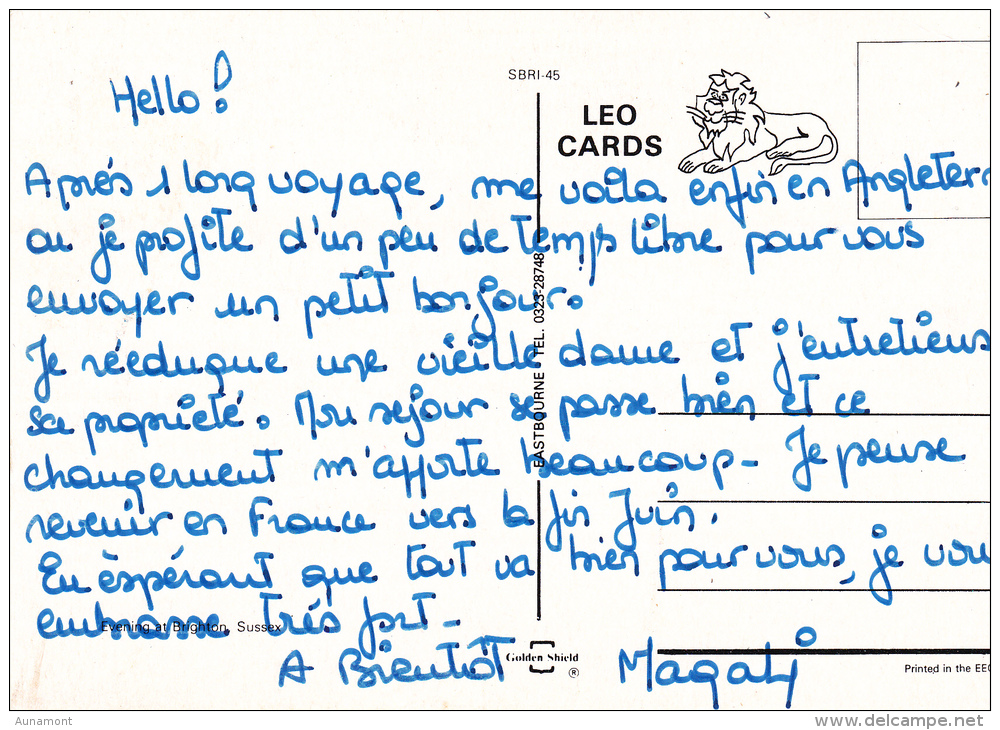 SBRI-45
LEO
CARDS
Hello!
Aprés 1 long voyage, me voila enfin en Angleterr
ou je profite d'un peu de temps libre pour vous
envoyer un petit bonjour.
Je rééduque une vieille dame et j'entretiens
sa propriété. Mon sejour se passe bien et ce
changement m'apporte beaucoup - Je pense
revenir en France vers la fin Juin.
En èspérant que tout va bien pour vous, je vou
embrasse trés fort -
A Bientôt Magali
EASTBOURNE TEL. 0323-28748
Evening at Brighton, Sussex
Golden Shield
®
Printed in the EEC
Aunamont
www.delcampe.net